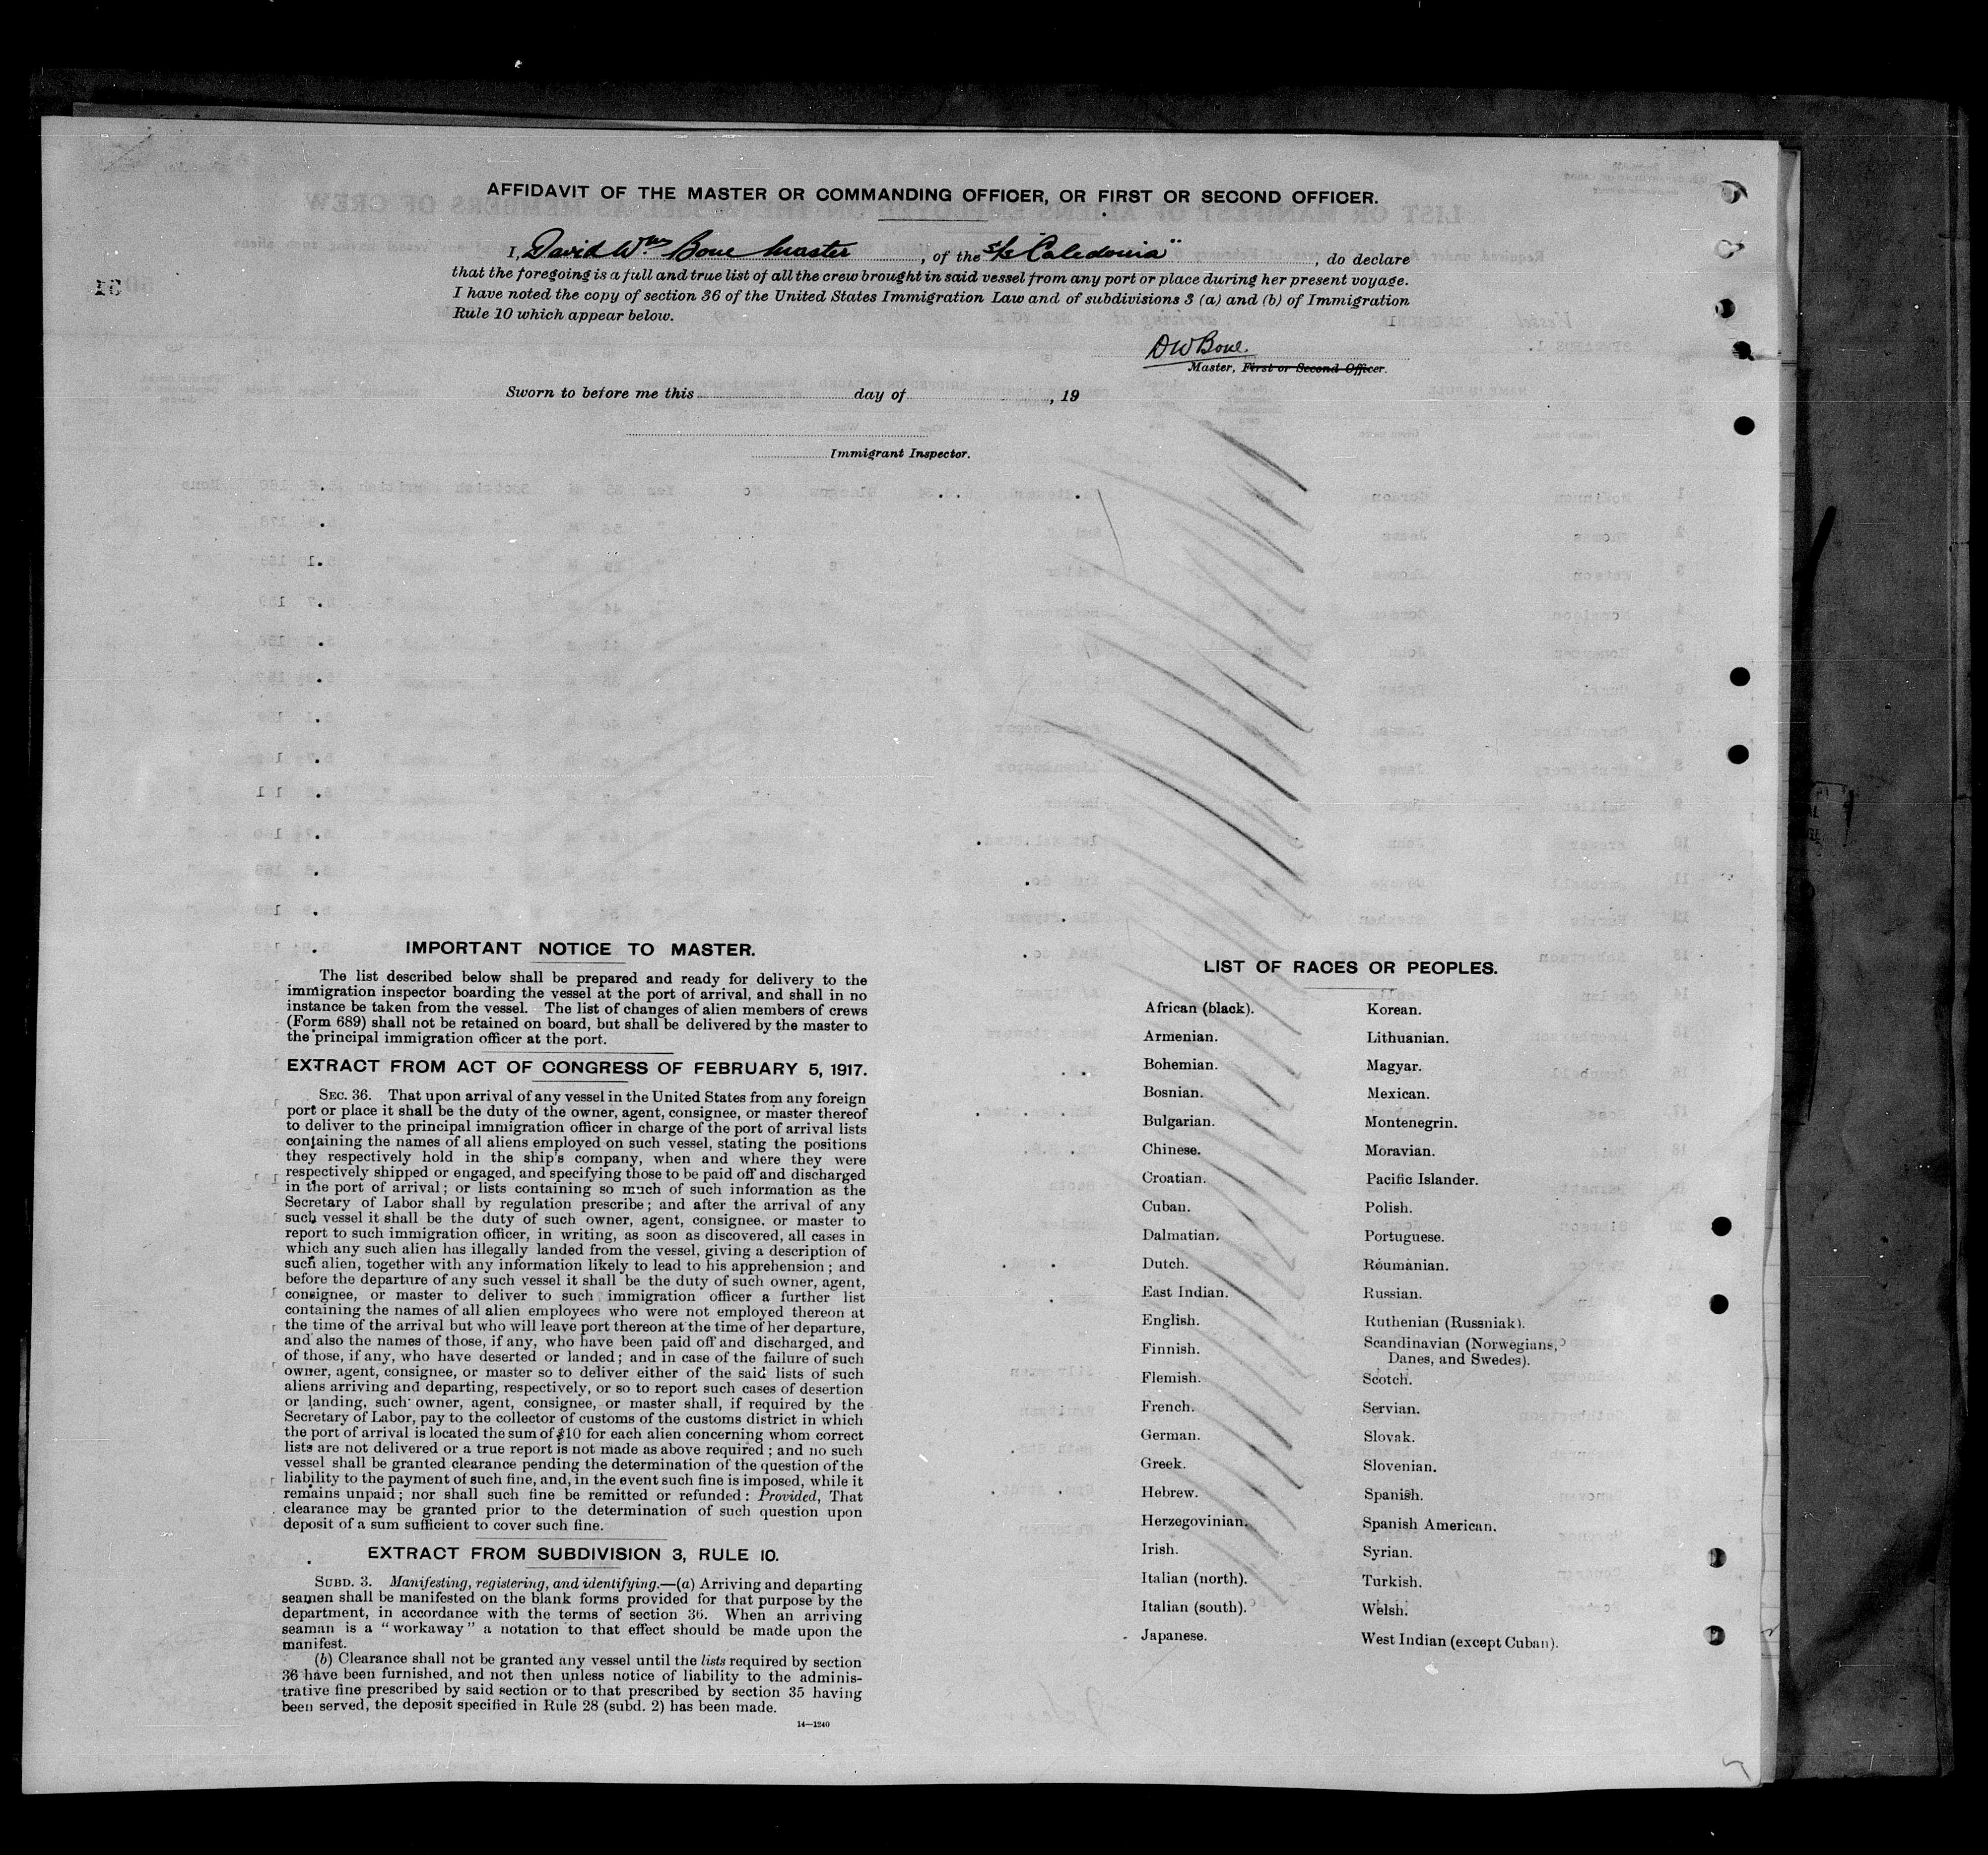 AFFIDAVIT OF THE MASTER OR COMMANDING OFFICER, OR FIRST OR SECOND OFFICER.
I, David Wm. Bone Master, of the S/S "Caledonia", do declare
that the foregoing is a full and true list of all the crew brought in said vessel from any port or place during her present voyage.
I have noted the copy of section 36 of the United States Immigration Law and of subdivisions 3 (a) and (b) of Immigration
Rule 10 which appear below.
DWBone.
Master, First or Second Officer.
Sworn to before me this day of , 19
Immigrant Inspector.
IMPORTANT NOTICE TO MASTER.
The list described below shall be prepared and ready for delivery to the
immigration inspector boarding the vessel at the port of arrival, and shall in no
instance be taken from the vessel. The list of changes of alien members of crews
(Form 689) shall not be retained on board, but shall be delivered by the master to
the principal immigration officer at the port.
EXTRACT FROM ACT OF CONGRESS OF FEBRUARY 5, 1917.
SEC. 36. That upon arrival of any vessel in the United States from any foreign
port or place it shall be the duty of the owner, agent, consignee, or master thereof
to deliver to the principal immigration officer in charge of the port of arrival lists
containing the names of all aliens employed on such vessel, stating the positions
they respectively hold in the ship's company, when and where they were
respectively shipped or engaged, and specifying those to be paid off and discharged
in the port of arrival; or lists containing so much of such information as the
Secretary of Labor shall by regulation prescribe; and after the arrival of any
such vessel it shall be the duty of such owner, agent, consignee. or master to
report to such immigration officer, in writing, as soon as discovered, all cases in
which any such alien has illegally landed from the vessel, giving a description of
such alien, together with any information likely to lead to his apprehension; and
before the departure of any such vessel it shall be the duty of such owner, agent,
consignee, or master to deliver to such immigration officer a further list
containing the names of all alien employees who were not employed thereon at
the time of the arrival but who will leave port thereon at the time of her departure,
and also the names of those, if any, who have been paid off and discharged, and
of those, if any, who have deserted or landed; and in case of the failure of such
owner, agent, consignee, or master so to deliver either of the said lists of such
aliens arriving and departing, respectively, or so to report such cases of desertion
or landing, such owner, agent, consignee, or master shall, if required by the
Secretary of Labor, pay to the collector of customs of the customs district in which
the port of arrival is located the sum of $10 for each alien concerning whom correct
lists are not delivered or a true report is not made as above required; and no such
vessel shall be granted clearance pending the determination of the question of the
liability to the payment of such fine, and, in the event such fine is imposed, while it
remains unpaid; nor shall such fine be remitted or refunded: Provided, That
clearance may be granted prior to the determination of such question upon
deposit of a sum sufficient to cover such fine.
EXTRACT FROM SUBDIVISION 3, RULE 10.
SUBD. 3. Manifesting, registering, and identifying.—(a) Arriving and departing
seamen shall be manifested on the blank forms provided for that purpose by the
department, in accordance with the terms of section 36. When an arriving
seaman is a "workaway" a notation to that effect should be made upon the
manifest.
(b) Clearance shall not be granted any vessel until the lists required by section
36 have been furnished, and not then unless notice of liability to the adminis-
trative fine prescribed by said section or to that prescribed by section 35 having
been served, the deposit specified in Rule 28 (subd. 2) has been made.
14—1240
LIST OF RACES OR PEOPLES.
African (black).
Armenian.
Bohemian.
Bosnian.
Bulgarian.
Chinese.
Croatian.
Cuban.
Dalmatian.
Dutch.
East Indian.
English.
Finnish.
Flemish.
French.
German.
Greek.
Hebrew.
Herzegovinian.
Irish.
Italian (north).
Italian (south).
Japanese.
Korean.
Lithuanian.
Magyar.
Mexican.
Montenegrin.
Moravian.
Pacific Islander.
Polish.
Portuguese.
Roumanian.
Russian.
Ruthenian (Russniak).
Scandinavian (Norwegians,
Danes, and Swedes).
Scotch.
Servian.
Slovak.
Slovenian.
Spanish.
Spanish American.
Syrian.
Turkish.
Welsh.
West Indian (except Cuban).